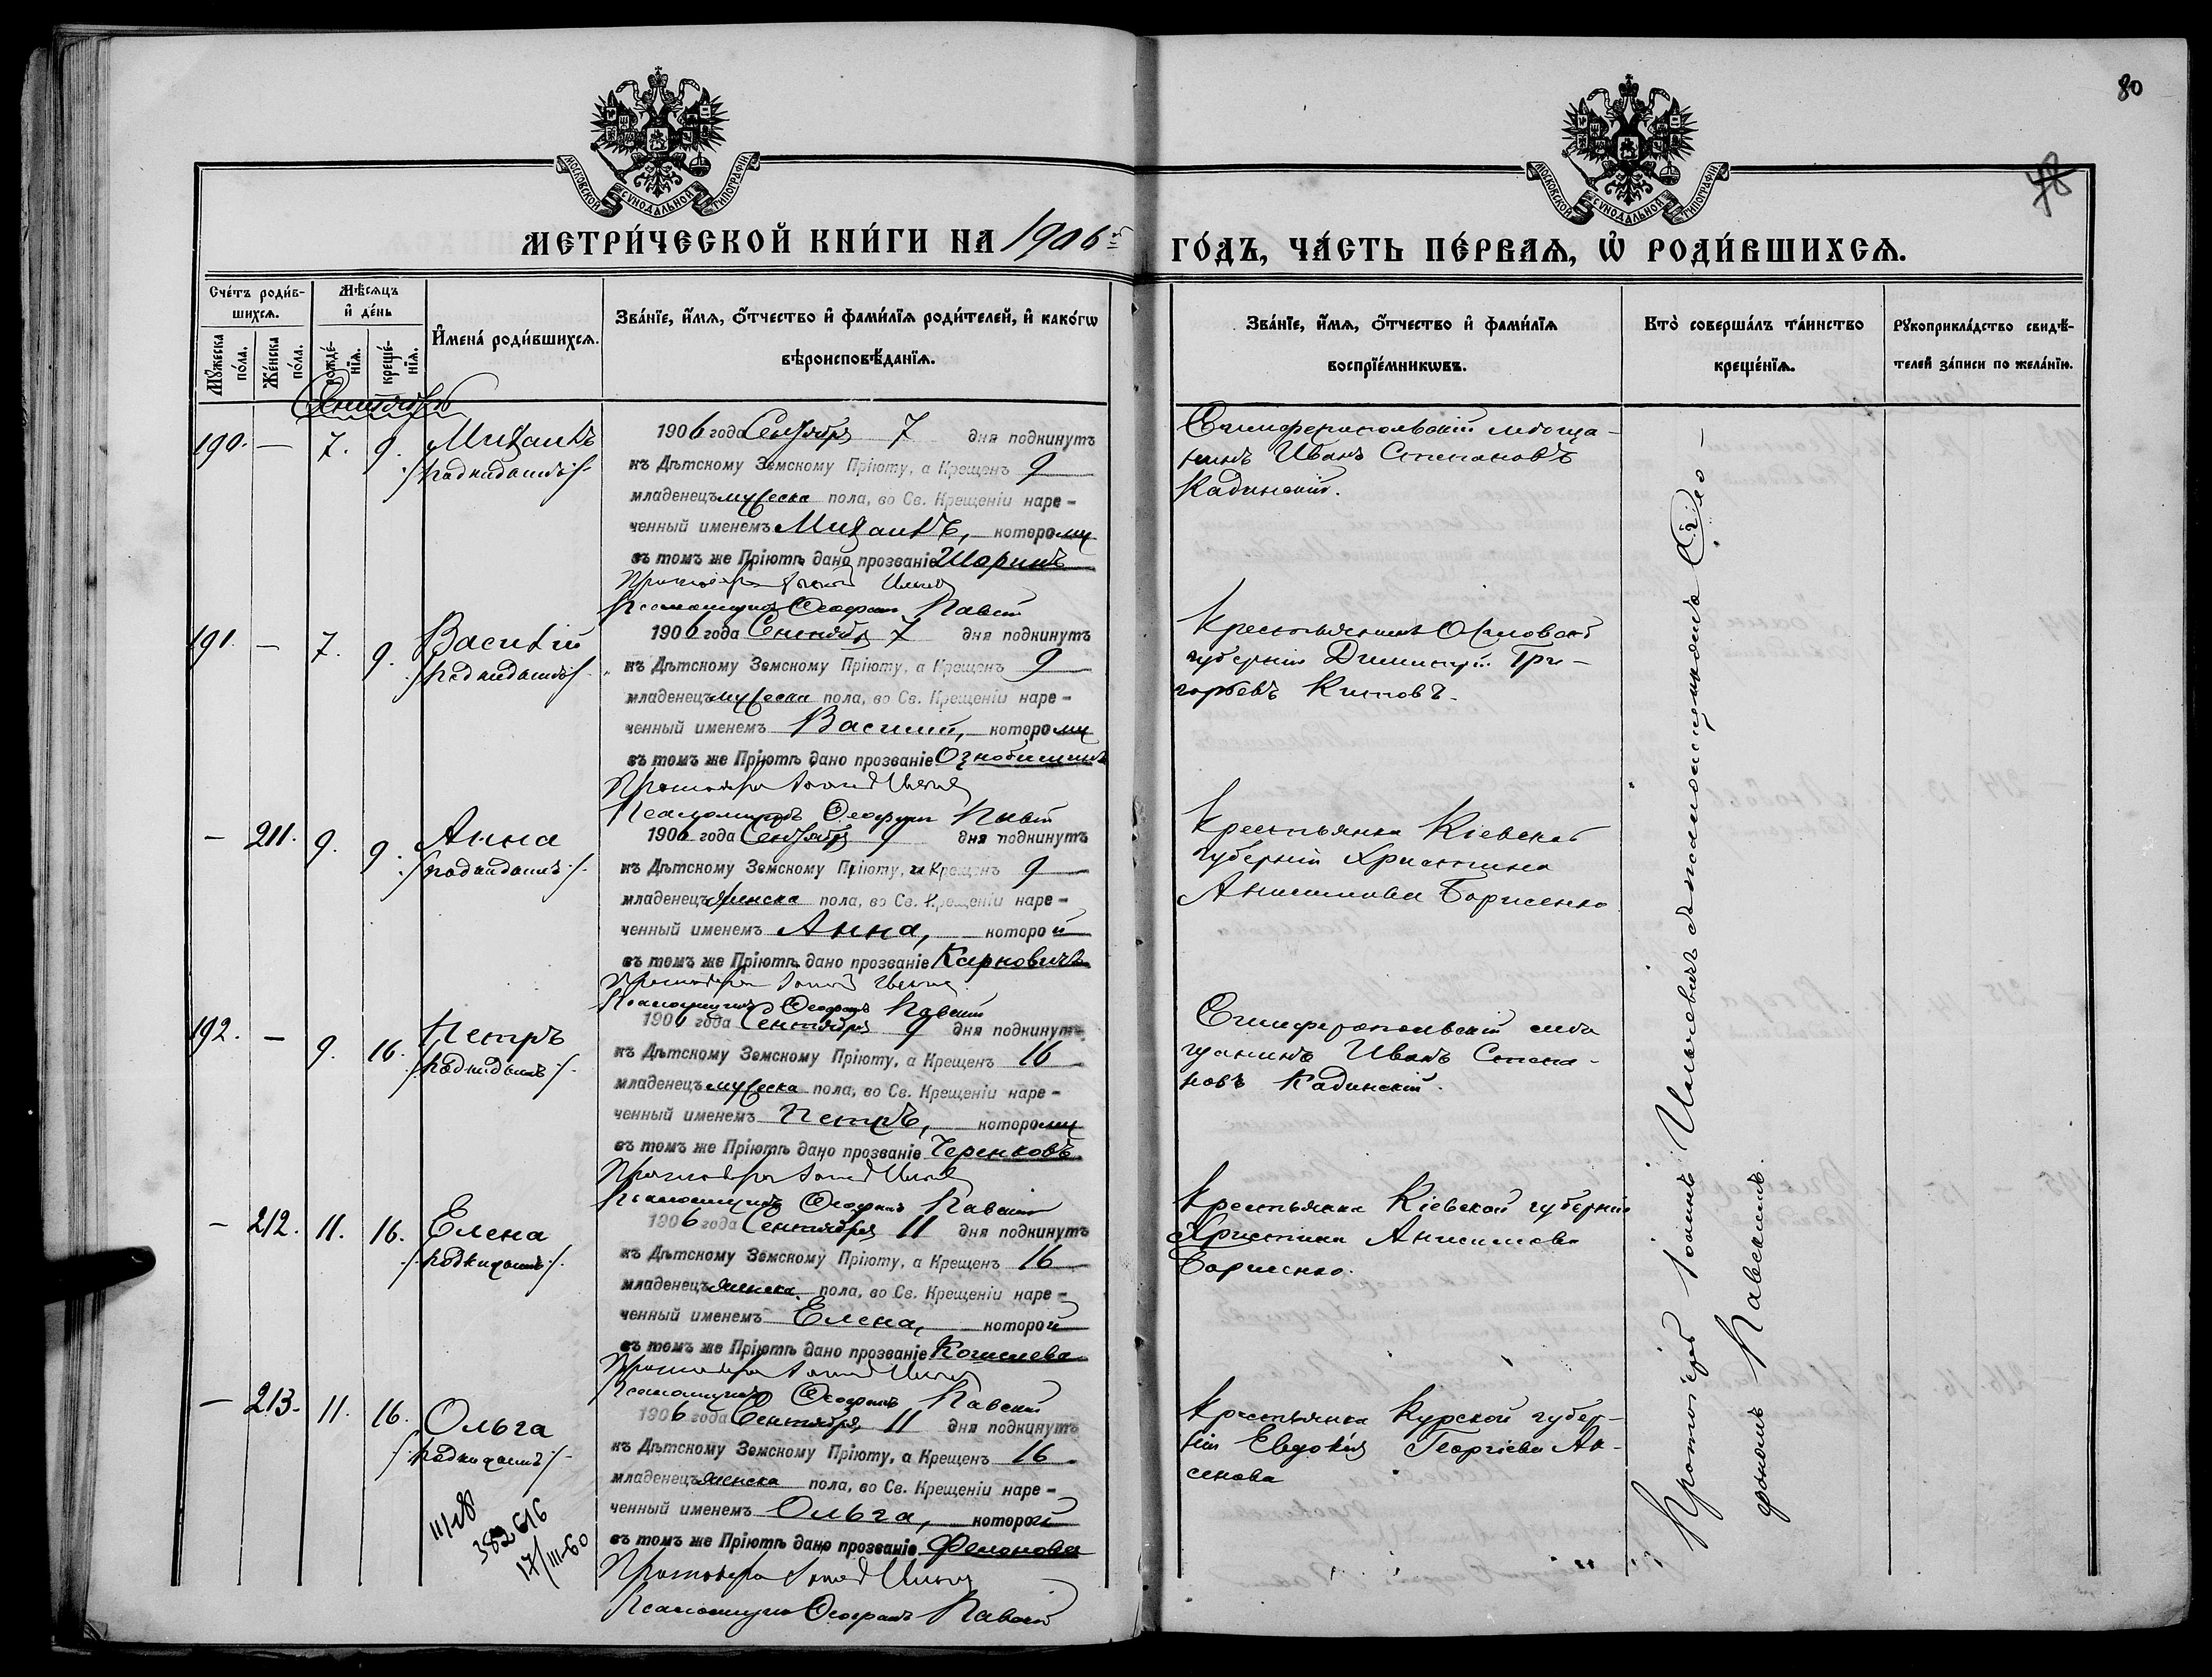 80
78
МОСКОВСКОЙ СѴНОДАЛЬНОЙ ТИПОГРАФІИ
МОСКОВСКОЙ СѴНОДАЛЬНОЙ ТИПОГРАФІИ
МЕТРИ́ЧЕСКОЙ КНИ́ГИ НА 1906й
ГО́ДЪ, ЧА́СТЬ ПЕ́РВАѦ, Ѡ҆ РОДИ́ВШИХСѦ.
Сче́тъ роди́в-
шихсѧ.
Мꙋ́жеска по́ла.
Же́нска по́ла.
Мѣ́сѧцъ
и҆ де́нь
рожде́-
нїѧ.
креще́-
нїѧ.
И҆мена̀ роди́вшихсѧ.
Зва́нїе, и҆́мѧ, ѻ҆́тчество и҆ фами́лїѧ роди́телей, и҆ како́гѡ
вѣроисповѣ́данїѧ.
Зва́нїе, и҆́мѧ, ѻ҆́тчество и҆ фами́лїѧ
воспрїе́мникѡвъ.
Кто̀ соверша́лъ та́инство
креще́нїѧ.
Рꙋкоприкла́дство свидѣ́-
телей за́писи по жела́нїю.
Сентябрь
190. — 7. 9. Михаилъ
/:подкидышъ:/
1906 года Сентября 7 дня подкинутъ
къ Дѣтскому Земскому Пріюту, а Крещенъ 9
младенецъ мужеска пола, во Св. Крещеніи наре-
ченный именемъ Михаилъ, которому
въ томъ же Пріютѣ дано прозваніе Шоринъ
Протоіерей Іоаннъ
Псаломщикъ Ѳеофанъ Павскій
Симферопольскій мѣща-
нинъ Иванъ Степановъ
Кадинскій.
191. — 7. 9. Василій
/:подкидышъ:/
1906 года Сентября 7 дня подкинутъ
къ Дѣтскому Земскому Пріюту, а Крещенъ 9
младенецъ мужеска пола, во Св. Крещеніи наре-
ченный именемъ Василій, которому
въ томъ же Пріютѣ дано прозваніе Ознобишинъ
Протоіерей Іоаннъ
Псаломщикъ Ѳеофанъ Павскій
Крестьянинъ Орловской
губерніи Димитрій Гри-
горьевъ Китовъ.
— 211. 9. 9. Анна
/:подкидышъ:/
1906 года Сентября 9 дня подкинутъ
къ Дѣтскому Земскому Пріюту, а Крещенъ 9
младенецъ женска пола, во Св. Крещеніи наре-
ченный именемъ Анна, которой
въ томъ же Пріютѣ дано прозваніе Карновичъ
Протоіерей Іоаннъ
Псаломщикъ Ѳеофанъ Павскій
Крестьянка Кіевской
губерніи Христина
Анисимова Борисенко
192. — 9. 16. Петръ
/:подкидышъ:/
1906 года Сентября 9 дня подкинутъ
къ Дѣтскому Земскому Пріюту, а Крещенъ 16
младенецъ мужеска пола, во Св. Крещеніи наре-
ченный именемъ Петръ, которому
въ томъ же Пріютѣ дано прозваніе Черенковъ.
Протоіерей Іоаннъ
Псаломщикъ Ѳеофанъ Павскій
Симферопольскій мѣ
щанинъ Иванъ Степа-
новъ Кадинскій.
— 212. 11. 16. Елена
/:подкидышъ:/
1906 года Сентября 11 дня подкинутъ
къ Дѣтскому Земскому Пріюту, а Крещенъ 16
младенецъ женска пола, во Св. Крещеніи наре-
ченный именемъ Елена, которой
въ томъ же Пріютѣ дано прозваніе
Протоіерей Іоаннъ
Псаломщикъ Ѳеофанъ Павскій
Крестьянка Кіевской губерніи
Христина Анисимова
Борисенко.
— 213. 11. 16. Ольга
/:подкидышъ:/
1906 года Сентября 11 дня подкинутъ
къ Дѣтскому Земскому Пріюту, а Крещенъ 16
младенецъ женска пола, во Св. Крещеніи наре-
ченный именемъ Ольга, которой
въ томъ же Пріютѣ дано прозваніе Филонова
Протоіерей Іоаннъ
Псаломщикъ Ѳеофанъ Павскій
Крестьянка Курской губер-
ніи Евдокія Георгіева Ак-
сенова
382616
17/III-60
Протоіерей Іоаннъ съ псаломщикомъ Ѳео-
фаномъ Павскимъ.